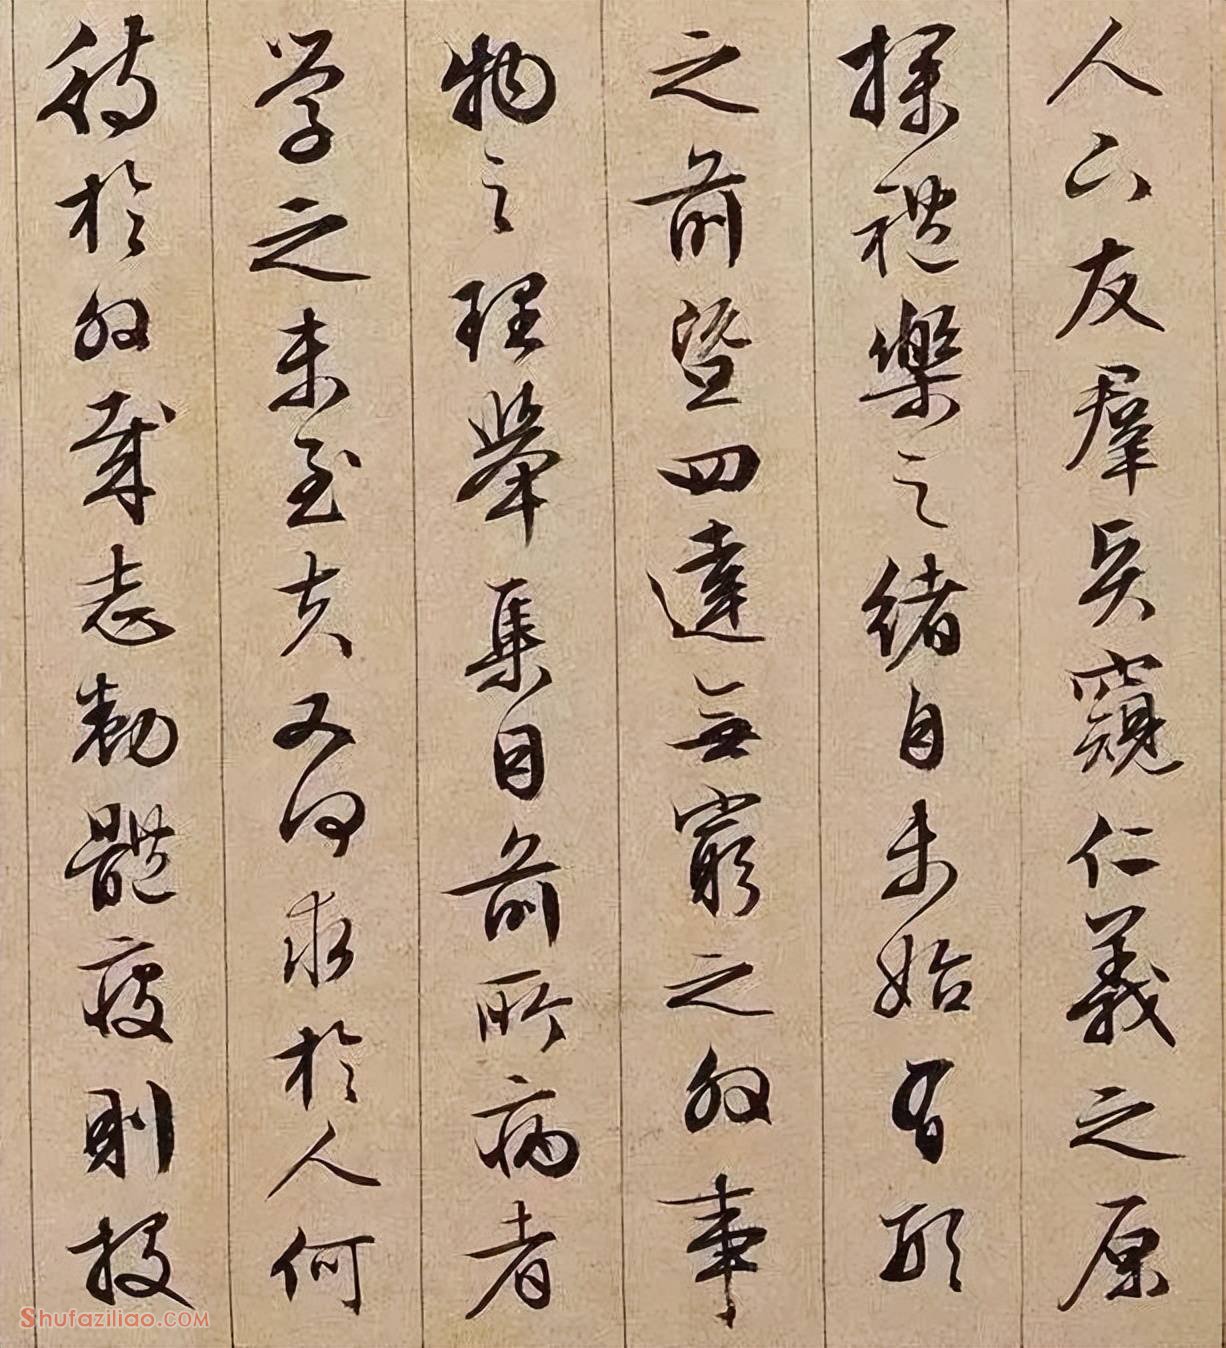 人下友羣賢窺仁義之原
探禮樂之緒自未始有形
之前暨四達無窮之外事
物之理舉集目前所病者
學之未至夫又何求於人何
待於外哉志勌體疲則投
Shufaziliao.COM